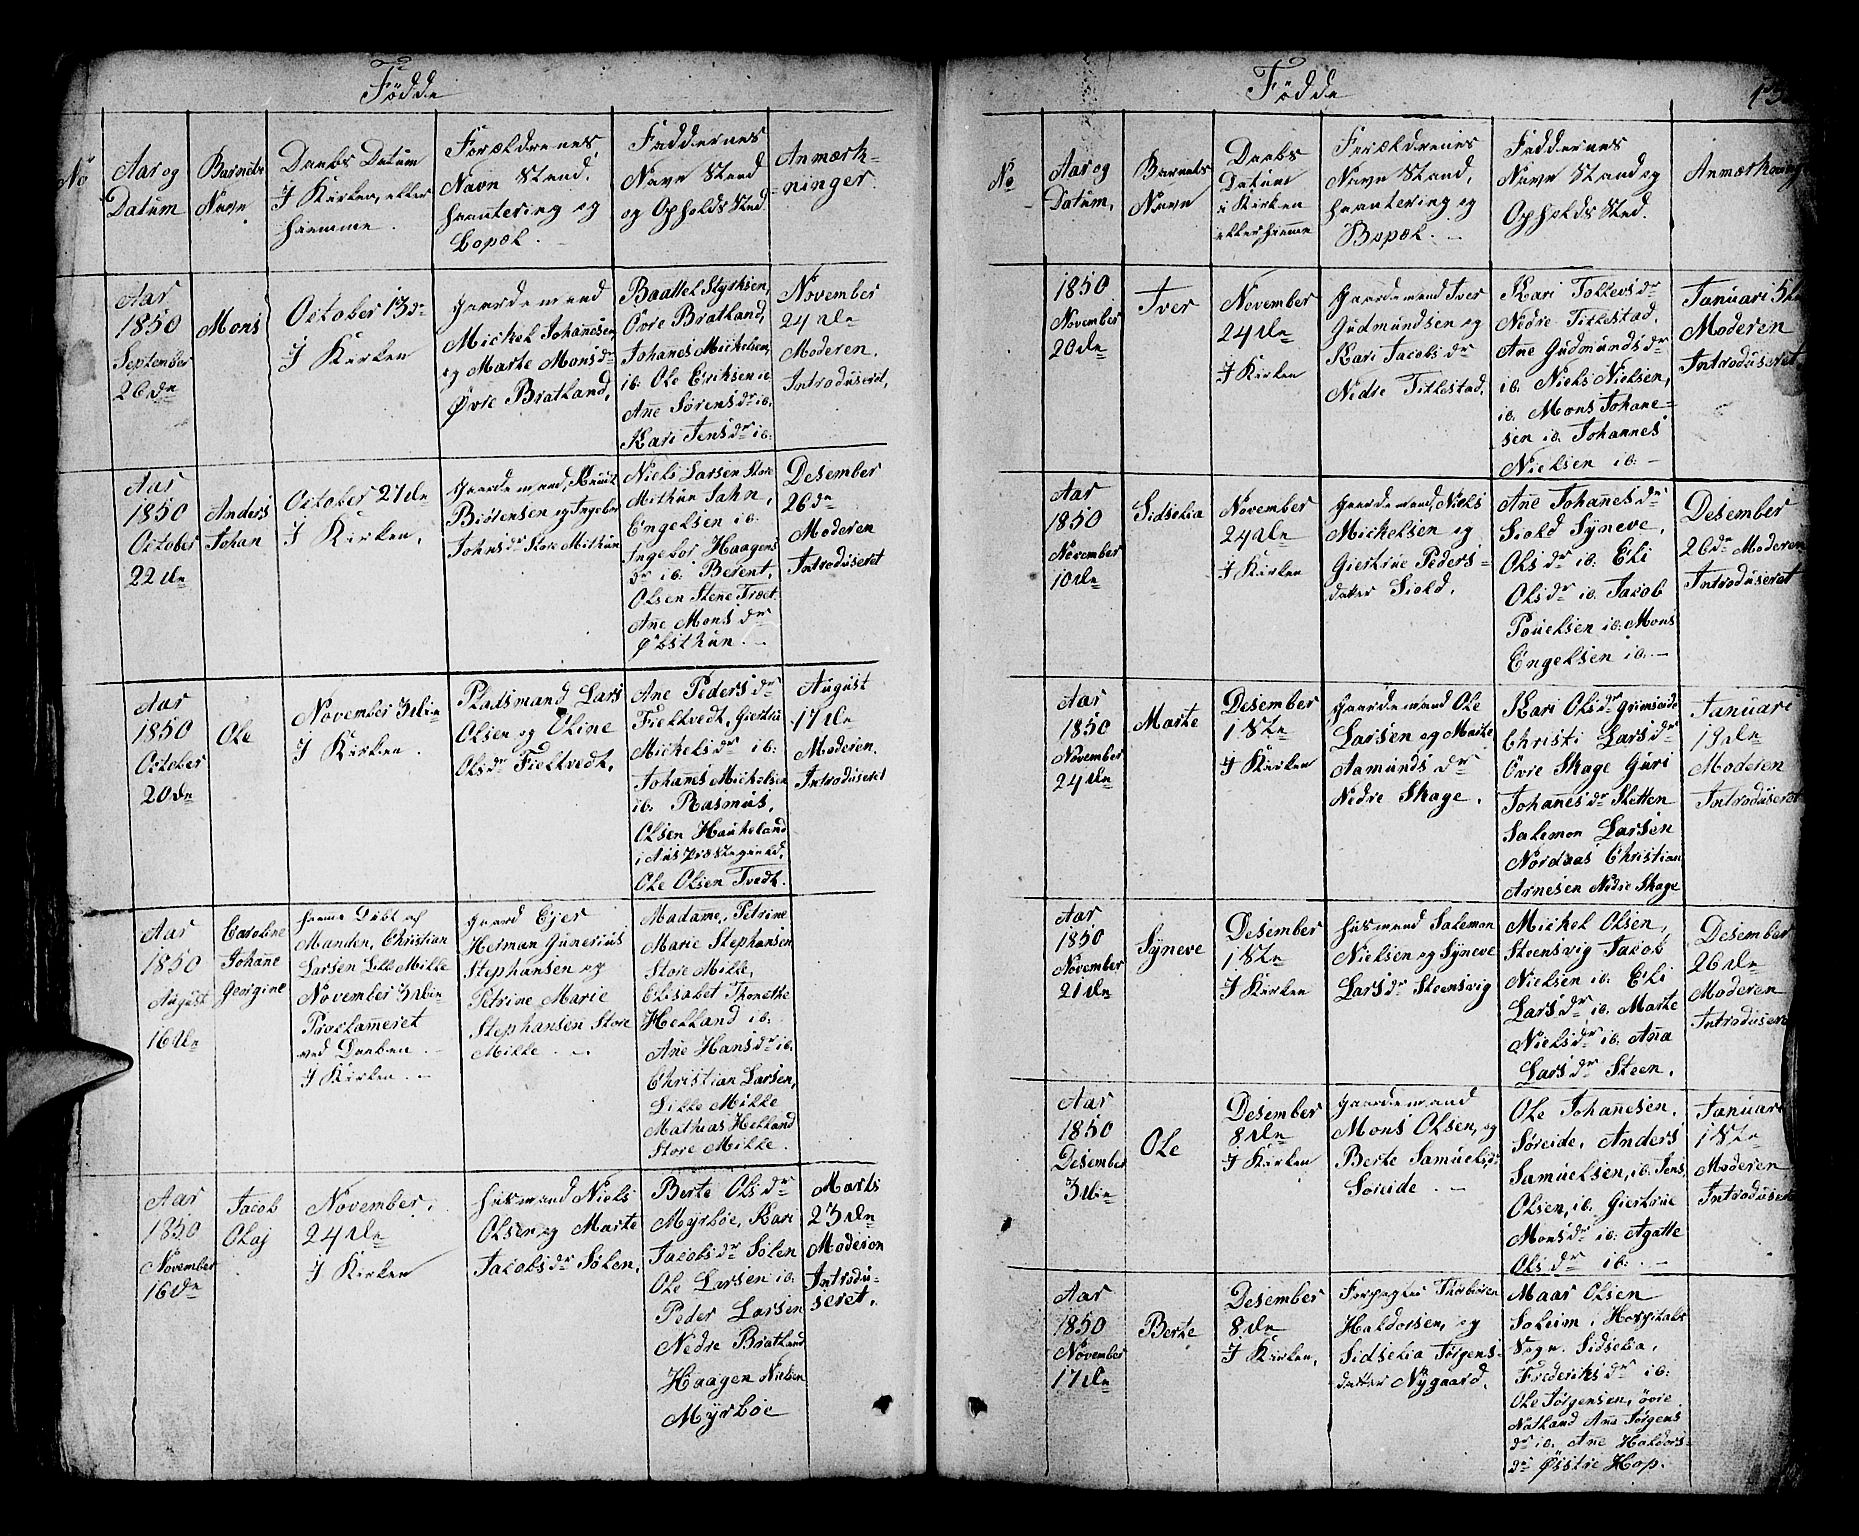 Fødde
No
Aar og
Datum
Barnets
Navn
Daabs Datum
I Kirken, eller
hiemme.
Forældrenes
Navn Stand,
haantering og
Bopæl.
Faddernes
Navn Stand
og Opholds Sted
Anmærk-
ninger.
Aar
1850
September
26de
Mons
October 13de
I Kirken
Gaardemand
Mickel Johanesen,
og Marte Monsdr
Øvre Bratland,
Baattel Styrksen,
Övre Bratland,
Johanes Mickelsen,
ib: Ole Eriksen ib
Ane Sörensdr ib:
Kari Jensdr ib:
November
24de
Moderen.
Introduseret,
Aar
1850
October
22de
Anders
Johan
October 27de
I Kirken,
Gaardemand, Knudt
Biörensen og Ingebor
Johnsdr Store Mithun
Niels Larsen Store
Mithun Jahn,
Engelsen ib:
Ingebor Haagens
dr ib: Berent,
Olsen Stene Træet
Ane Monsdr
Øbsthun.
Desember
26de
Moderen
Introduseret
Aar
1850
October
20de
Ole
November 3die
I Kirken.
Pladsmand Lars
Olsen og Oline
Olsdr Fiektvedt,
Ane Pedersdr
Fiektvedt, Giertru
Mickelsdr ib:
Johanes Mickelsen
ib: Rasmus,
Olsen Haukeland
i Aus præstegield,
Ole Olsen Tvedt.
August
17de
Moderen.
Introduseret
Aar
1850
August
16de
Caroline
Johane
Georgine
hieme Döbt af
Manden, Christian
Larsen Lille Milde
November 3die
Proclameret
ved Daaben.
I Kirken.
Gaard Ejer
Herman Gunerius
Stephansen og
Petrine Marie
Stephansen Store
Milde
Madame, Petrine
Marie Stephansen
Store Milde,
Elisabet Thonethe
Helland ib:
Ane Hansdr ib:
Christian Larsen,
Lille Milde
Mathias Helland
Store Milde.
Aar
1850
November
16de
Jacob
Olaj
November
24de
I Kirken
Husmand Niels
Olsen og Marte
Jacobsdr Sölen,
Berte Olsdr
Myrböe, Kari
Jacobsdr Sölen
Ole Larsen ib:
Peder Larsen
Nedre Bratland
Haagen Nielsen
Myrböe
Marts
23de
Moderen
Introdu-
seret.
Fødde
No
Aar og
Datum,
Barnets
Navn
Daabs
Datum
i Kirken
eller hieme
Forældrenes
Navn Stand,
haantering og
Bopæl.
Faddernes
Navn Stand og
Opholds Sted.
Anmærkning
1850
November
20de
Iver
November
24de
I Kirken
Gaardemand Iver
Gudmundsen og
Kari Jacobsdr
Nedre Titlestad,
Kari Tollevsdr
Nedre Titlestad.
Ane Gudmundsdr
ib: Niels Nielsen,
ib. Mons Johane-
sen ib. Johannes
Nielsen ib:
Januari 5te
Moderen
Introduseret
Aar
1850
November
10de
Sidselia
November
24de
I Kirken
Gaardemand, Niels
Mickelsen og
Giertrue Peders-
datter Siold,
Ane Johanesdr
Siold Syneve,
Olsdr ib: Eli
Olsdr ib. Jacob
Pouelsen ib: Mons
Engelsen ib.
Desember
26de Moderen
Introduseret
Aar
1850
November
24de
Marte
Desember
1Ste
I Kirken
Gaardemand Ole
Larsen og Marte
Aamundsdr
Nedre Skage.
Kari Olsdr Grimseide
Christi Larsdr
Övre Skage Guri
Johanesdr Sletten
Salemon Larsen
Nordaas Christian
Arnesen Nedre Skage
Januari
19de
Moderen
Introduseret
Aar
1850
November
21de
Syneve
Desember
1Ste
I Kirken
Husmand Salemon
Nielsen og Syneve
Larsdr Steensvig
Mickel Olsen,
Steensvig Jacob
Nielsen ib: Eli
Larsdr ib. Marte
Nielsdr ib: Ana
Larsdr Steen.
Desember
26de
Moderen
Introduseret
Aar
1850
Desember
3die
Ole
Desember
8de
I Kirken
Gaardemand
Mons Olsen, og
Berte Samuelsdr
Söreide.
Ole Johanesen,
Söreide, Anders
Samuelsen, ib: Jens,
Olsen, ib. Giertrue
Monsdr ib: Agatte
Olsdr ib:
Januari
1Ste
Moderen
Introduseret
Aar
1850
November
17de
Berte
Desember
8de
I Kirken,
Forpagter Thorbiören
Haldorsen, og
Sidselia Jörgens-
datter Nygaard.
Maar Olsen
Soleim, Hospitals
Sogn. Sidselia,
Frederiksdr ib:
Ole Jörgensen, övre
Natland Ane Jörgens
dr ib. Ane Haldors-
dr Øsstre Hop.